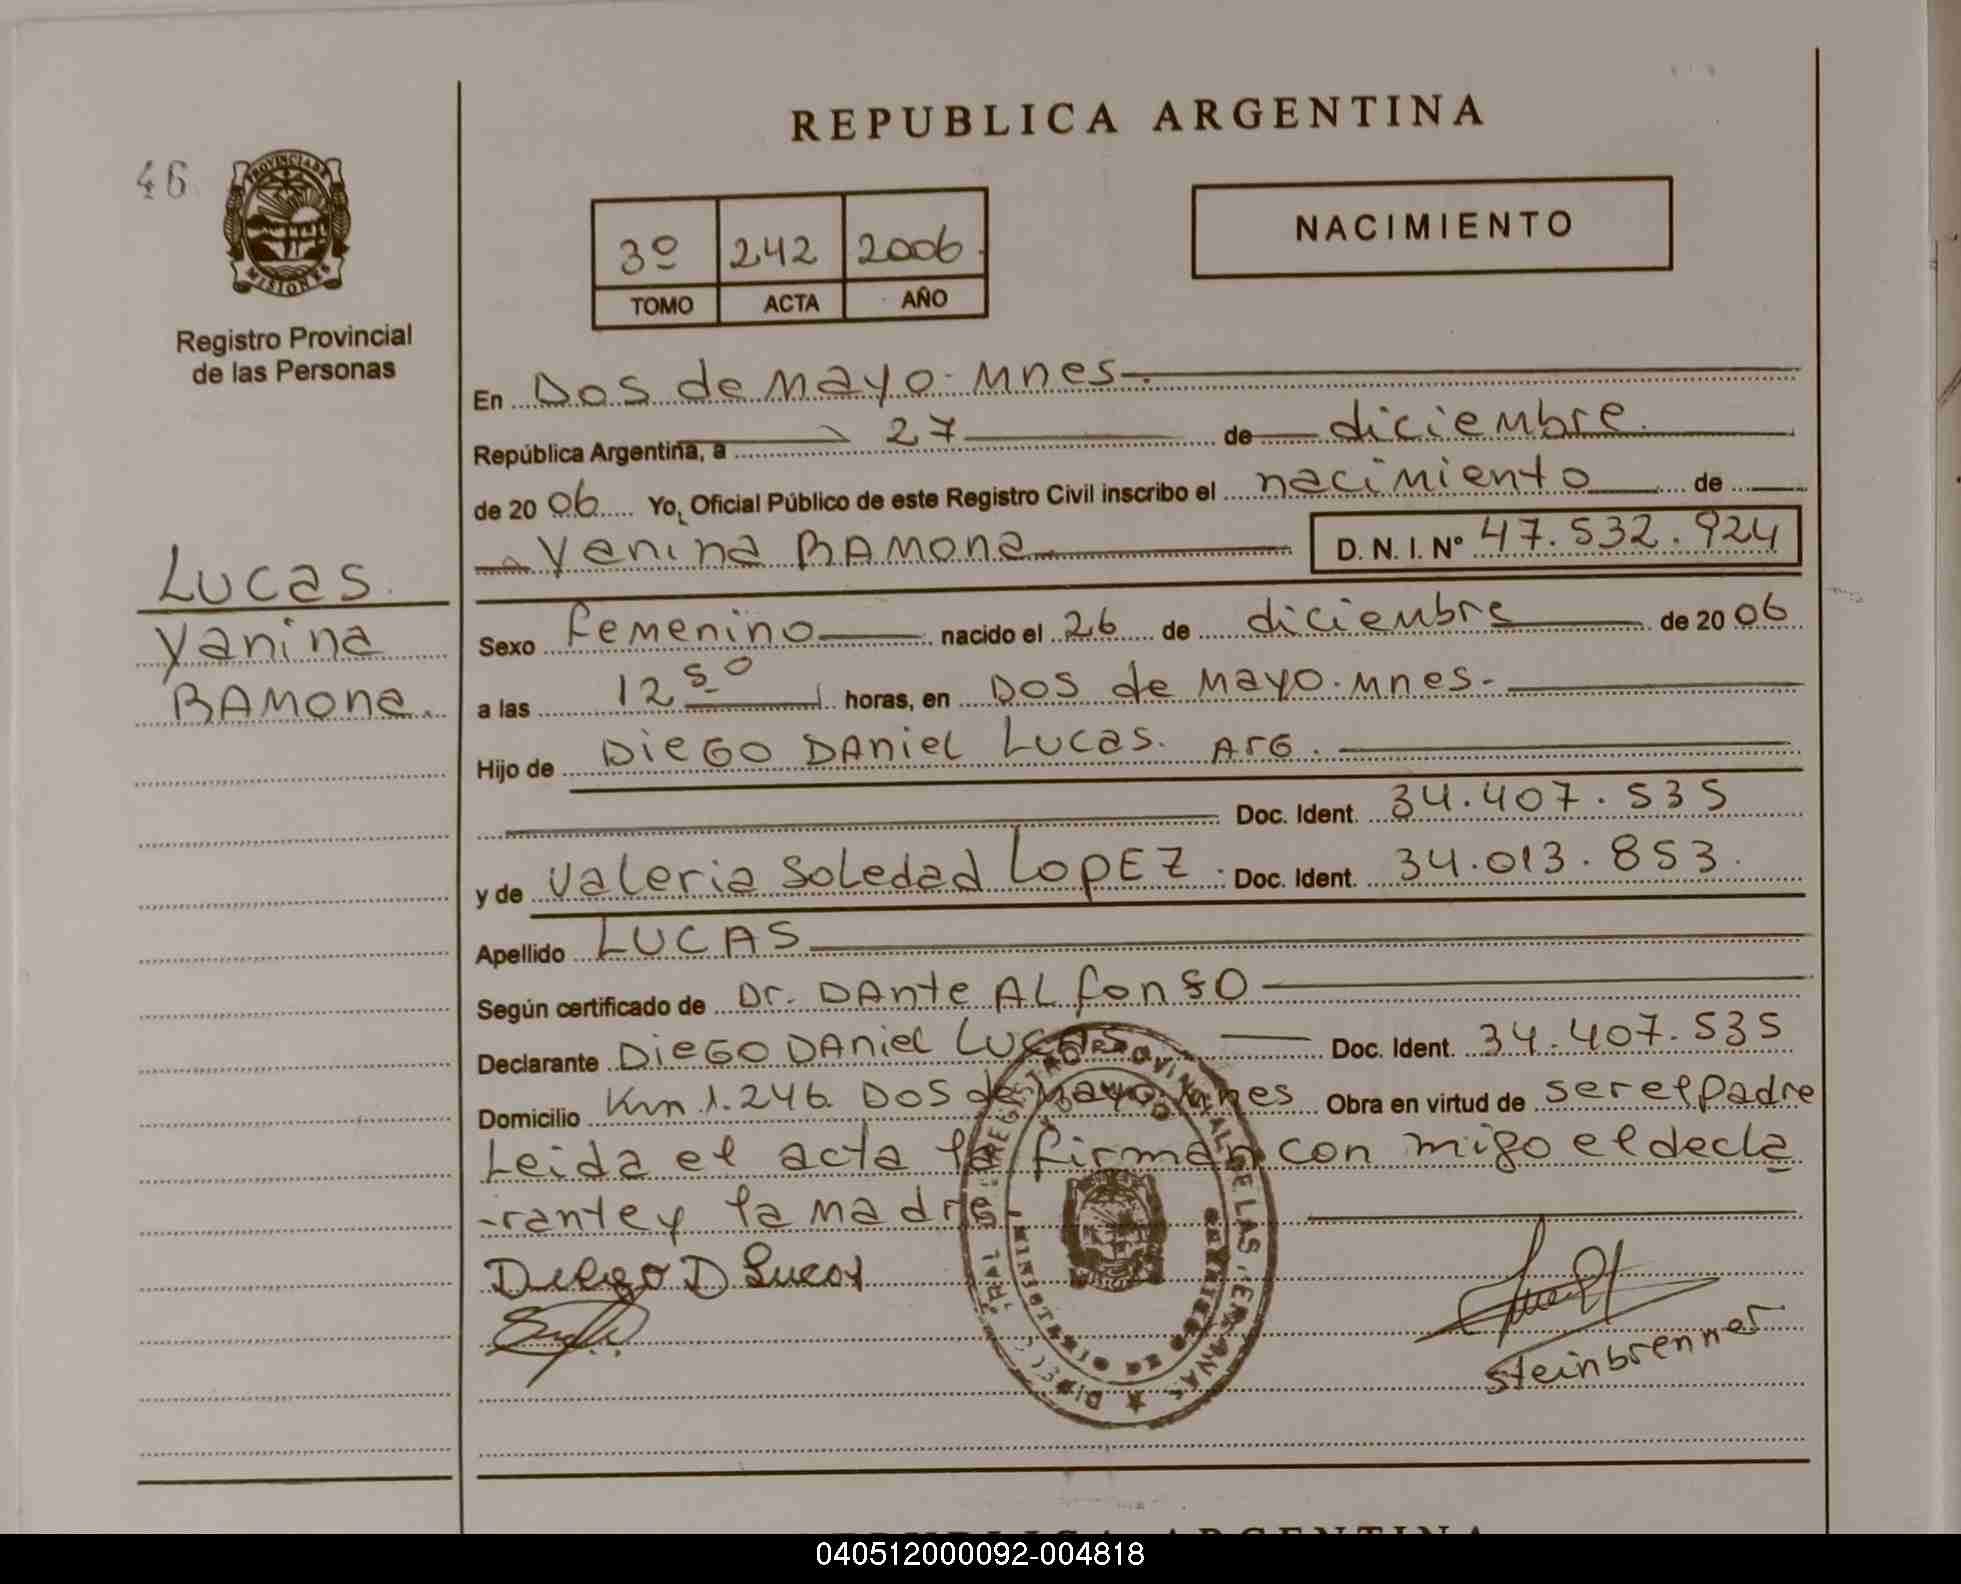 REPUBLICA ARGENTINA
46
PROVINCIA DE
MISIONES
Registro Provincial
de las Personas
3º 242 2006
TOMO ACTA AÑO
NACIMIENTO
En Dos de Mayo-Mnes-
República Argentina, a 27 de diciembre
de 2006 Yo, Oficial Público de este Registro Civil inscribo el nacimiento de
Yanina RAMona D. N. I. Nº 47.532.924
Lucas
Yanina
RAMona
Sexo Femenino nacido el 26 de diciembre de 2006
a las 12 50 horas, en Dos de Mayo.Mnes-
Hijo de DieGO DAniel Lucas. ArG.
Doc. Ident. 34.407.535
y de Valeria Soledad LopEZ. Doc. Ident. 34.013.853.
Apellido LUCAS
Según certificado de Dr. DAnte ALfonso
Declarante DieGO DAniel Lucas Doc. Ident. 34.407.535
Domicilio Km 1.246 Dos de Mayo Mnes Obra en virtud de ser el padre
Leida el acta la firman con migo el decla
-rante y la madre
Diego D Lucas
Steinbrenner
REPUBLICA ARGENTINA
040512000092-004818